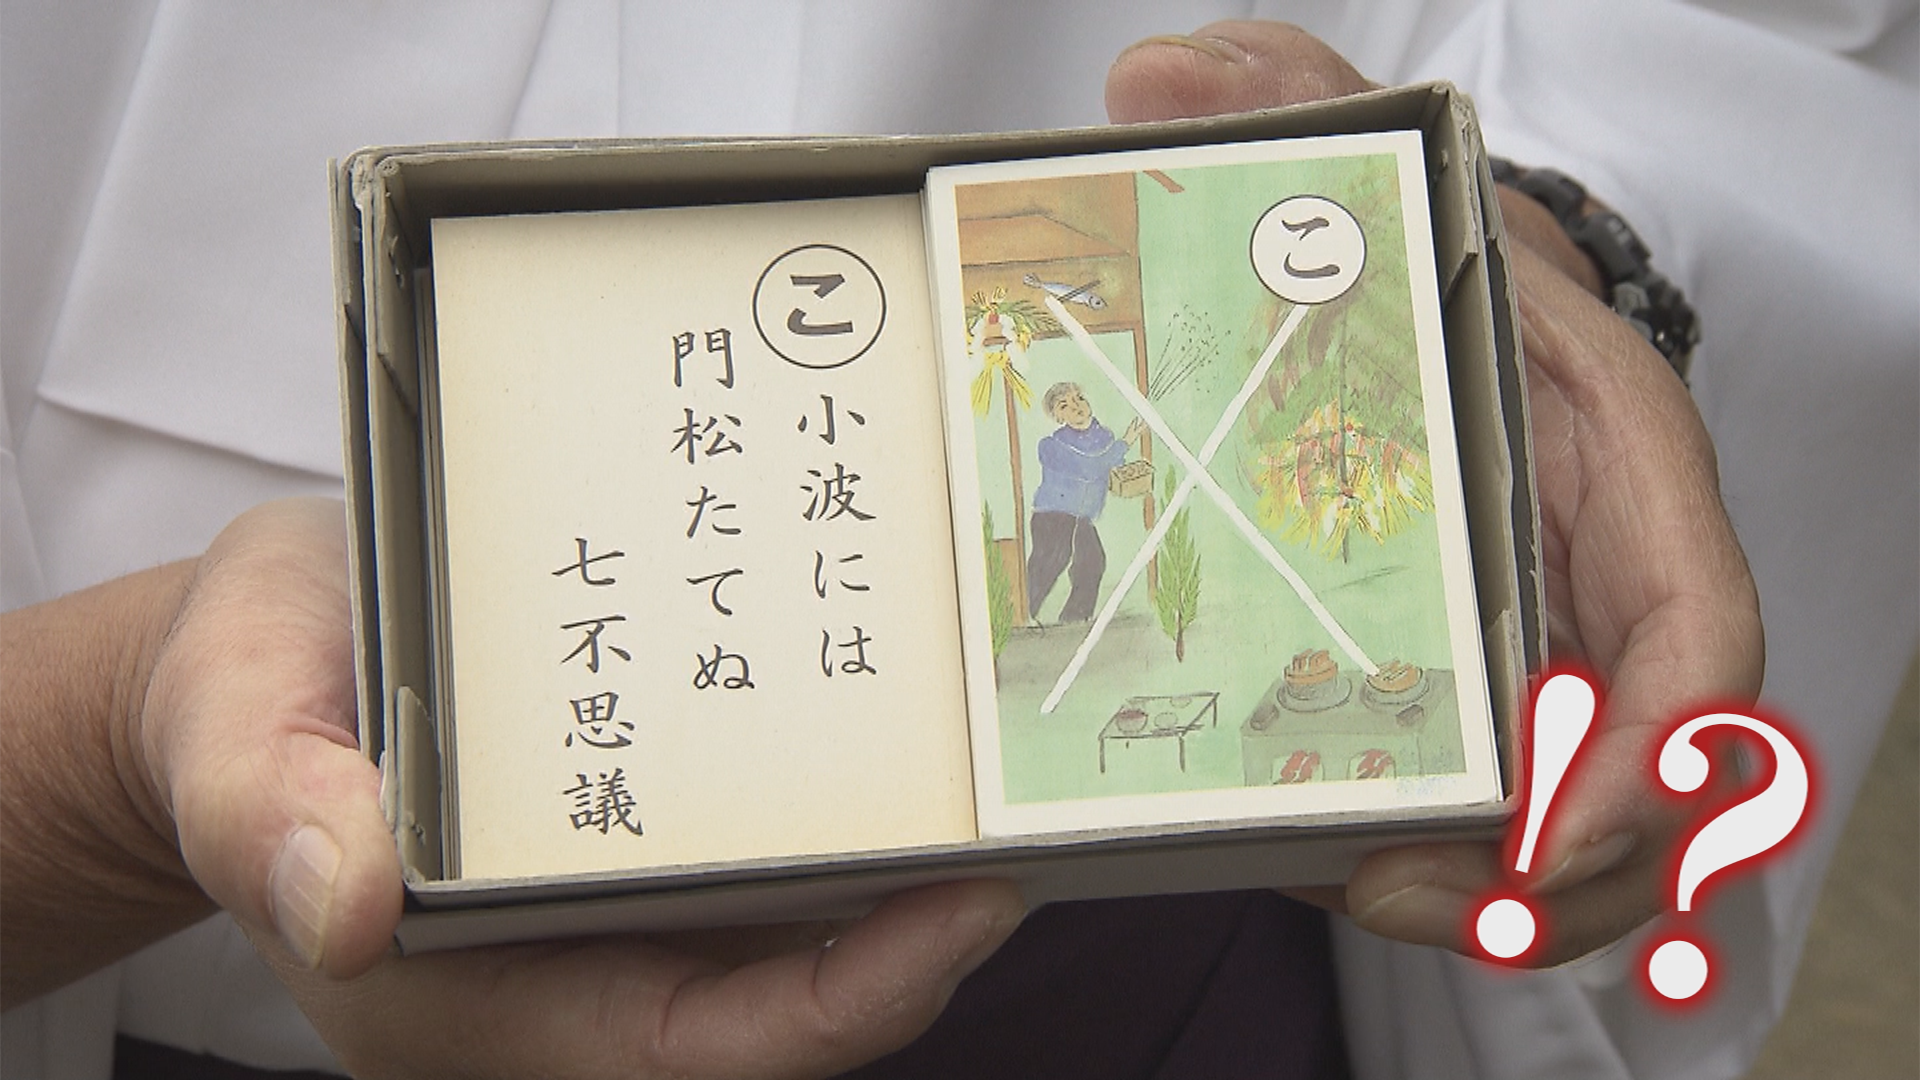 こ
小波には
門松たてぬ
七不思議
こ
!?